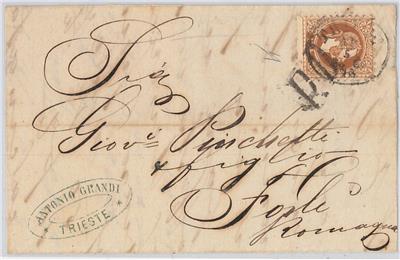 P.D.
Sig.
Giov. Pinchetti
& figlio
Forlì
Romagna
ANTONIO GRANDI
TRIESTE